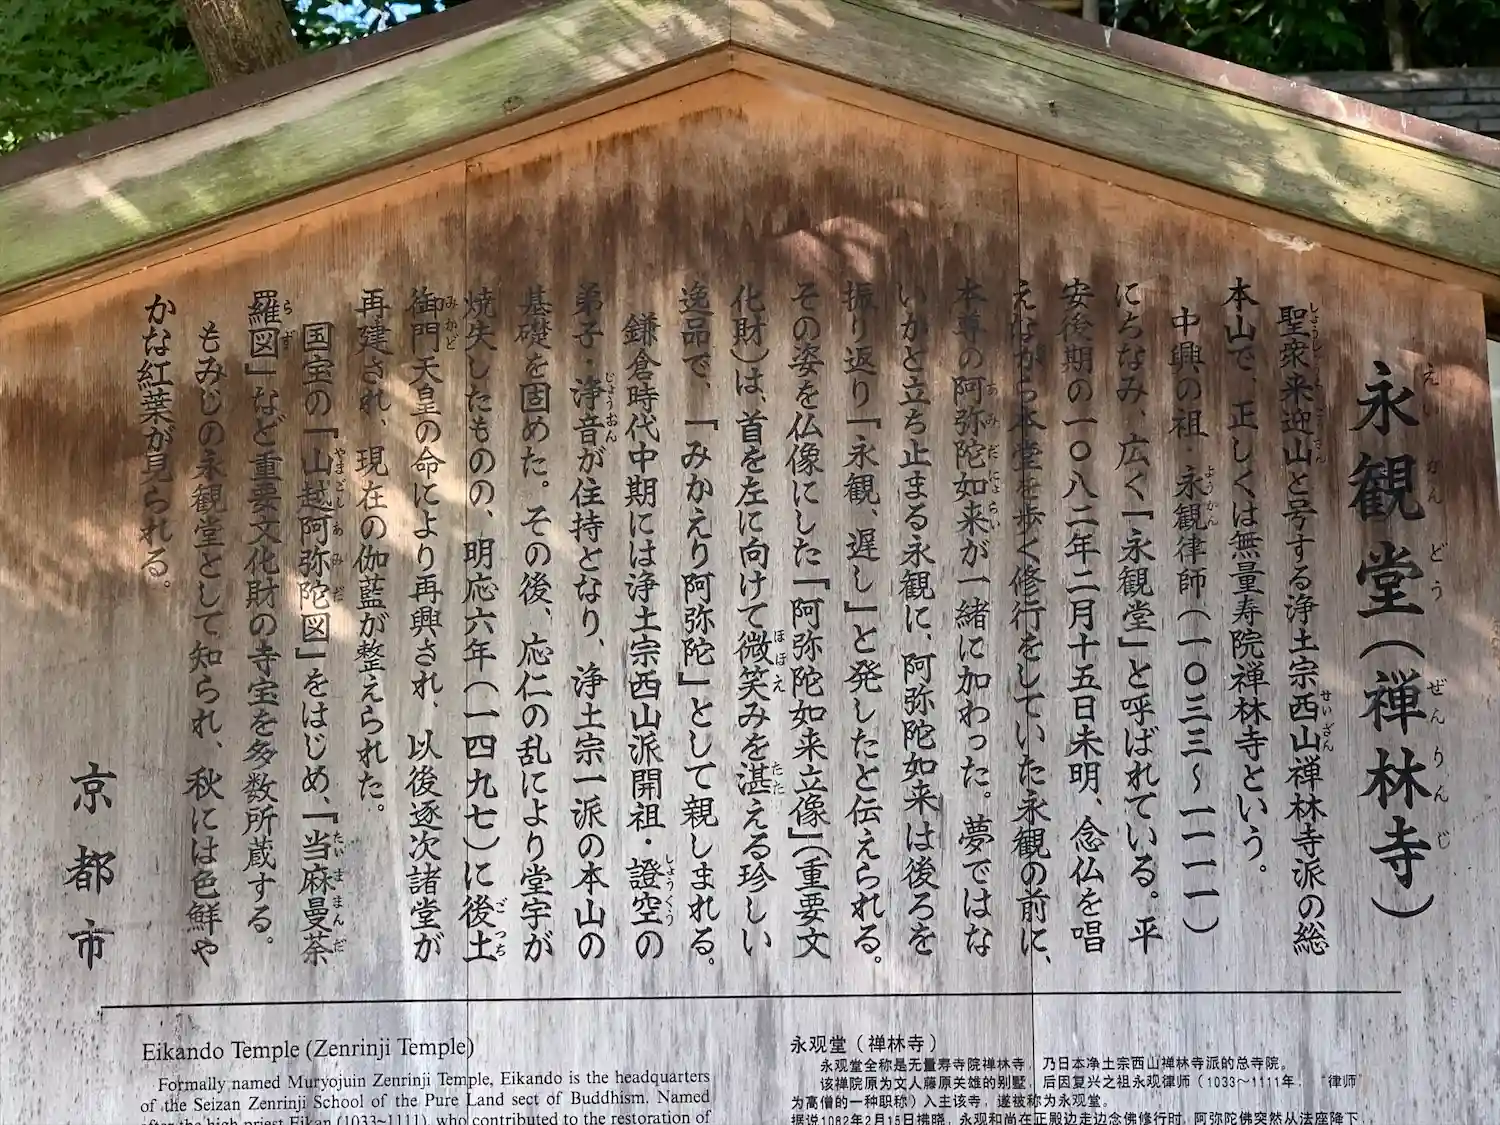 永観堂(禅林寺)
えいかんどう ぜんりんじ
聖衆来迎山と号する浄土宗西山禅林寺派の総
本山で、正しくは無量寿院禅林寺という。
中興の祖・永観律師(一〇三三〜一一一一)
にちなみ、広く「永観堂」と呼ばれている。平
安後期の一〇八二年二月十五日未明、念仏を唱
えながら本堂を歩く修行をしていた永観の前に、
本尊の阿弥陀如来が一緒に加わった。夢ではな
いかと立ち止まる永観に、阿弥陀如来は後ろを
振り返り「永観、遅し」と発したと伝えられる。
その姿を仏像にした「阿弥陀如来立像」(重要文
化財)は、首を左に向けて微笑みを湛える珍しい
逸品で、「みかえり阿弥陀」として親しまれる。
鎌倉時代中期には浄土宗西山派開祖・證空の
弟子・浄音が住持となり、浄土宗一派の本山の
基礎を固めた。その後、応仁の乱により堂宇が
焼失したものの、明応六年(一四九七)に後土
御門天皇の命により再興され、以後逐次諸堂が
再建され、現在の伽藍が整えられた。
国宝の「山越阿弥陀図」をはじめ、「当麻曼荼
羅図」など重要文化財の寺宝を多数所蔵する。
もみじの永観堂として知られ、秋には色鮮や
かな紅葉が見られる。
京都市
Eikando Temple (Zenrinji Temple)
Formally named Muryojuin Zenrinji Temple, Eikando is the headquarters
of the Seizan Zenrinji School of the Pure Land sect of Buddhism. Named
after the high priest Eikan (1033~1111), who contributed to the restoration of
永观堂(禅林寺)
永观堂全称是无量寿寺院禅林寺,乃日本净土宗西山禅林寺派的总寺院。
该禅院原为文人藤原关雄的别墅,后因复兴之祖永观律师(1033～1111年,"律师"
为高僧的一种职称)入主该寺,遂被称为永观堂。
据说1082年2月15日拂晓,永观和尚在正殿边走边念佛修行时,阿弥陀佛突然从法座降下,